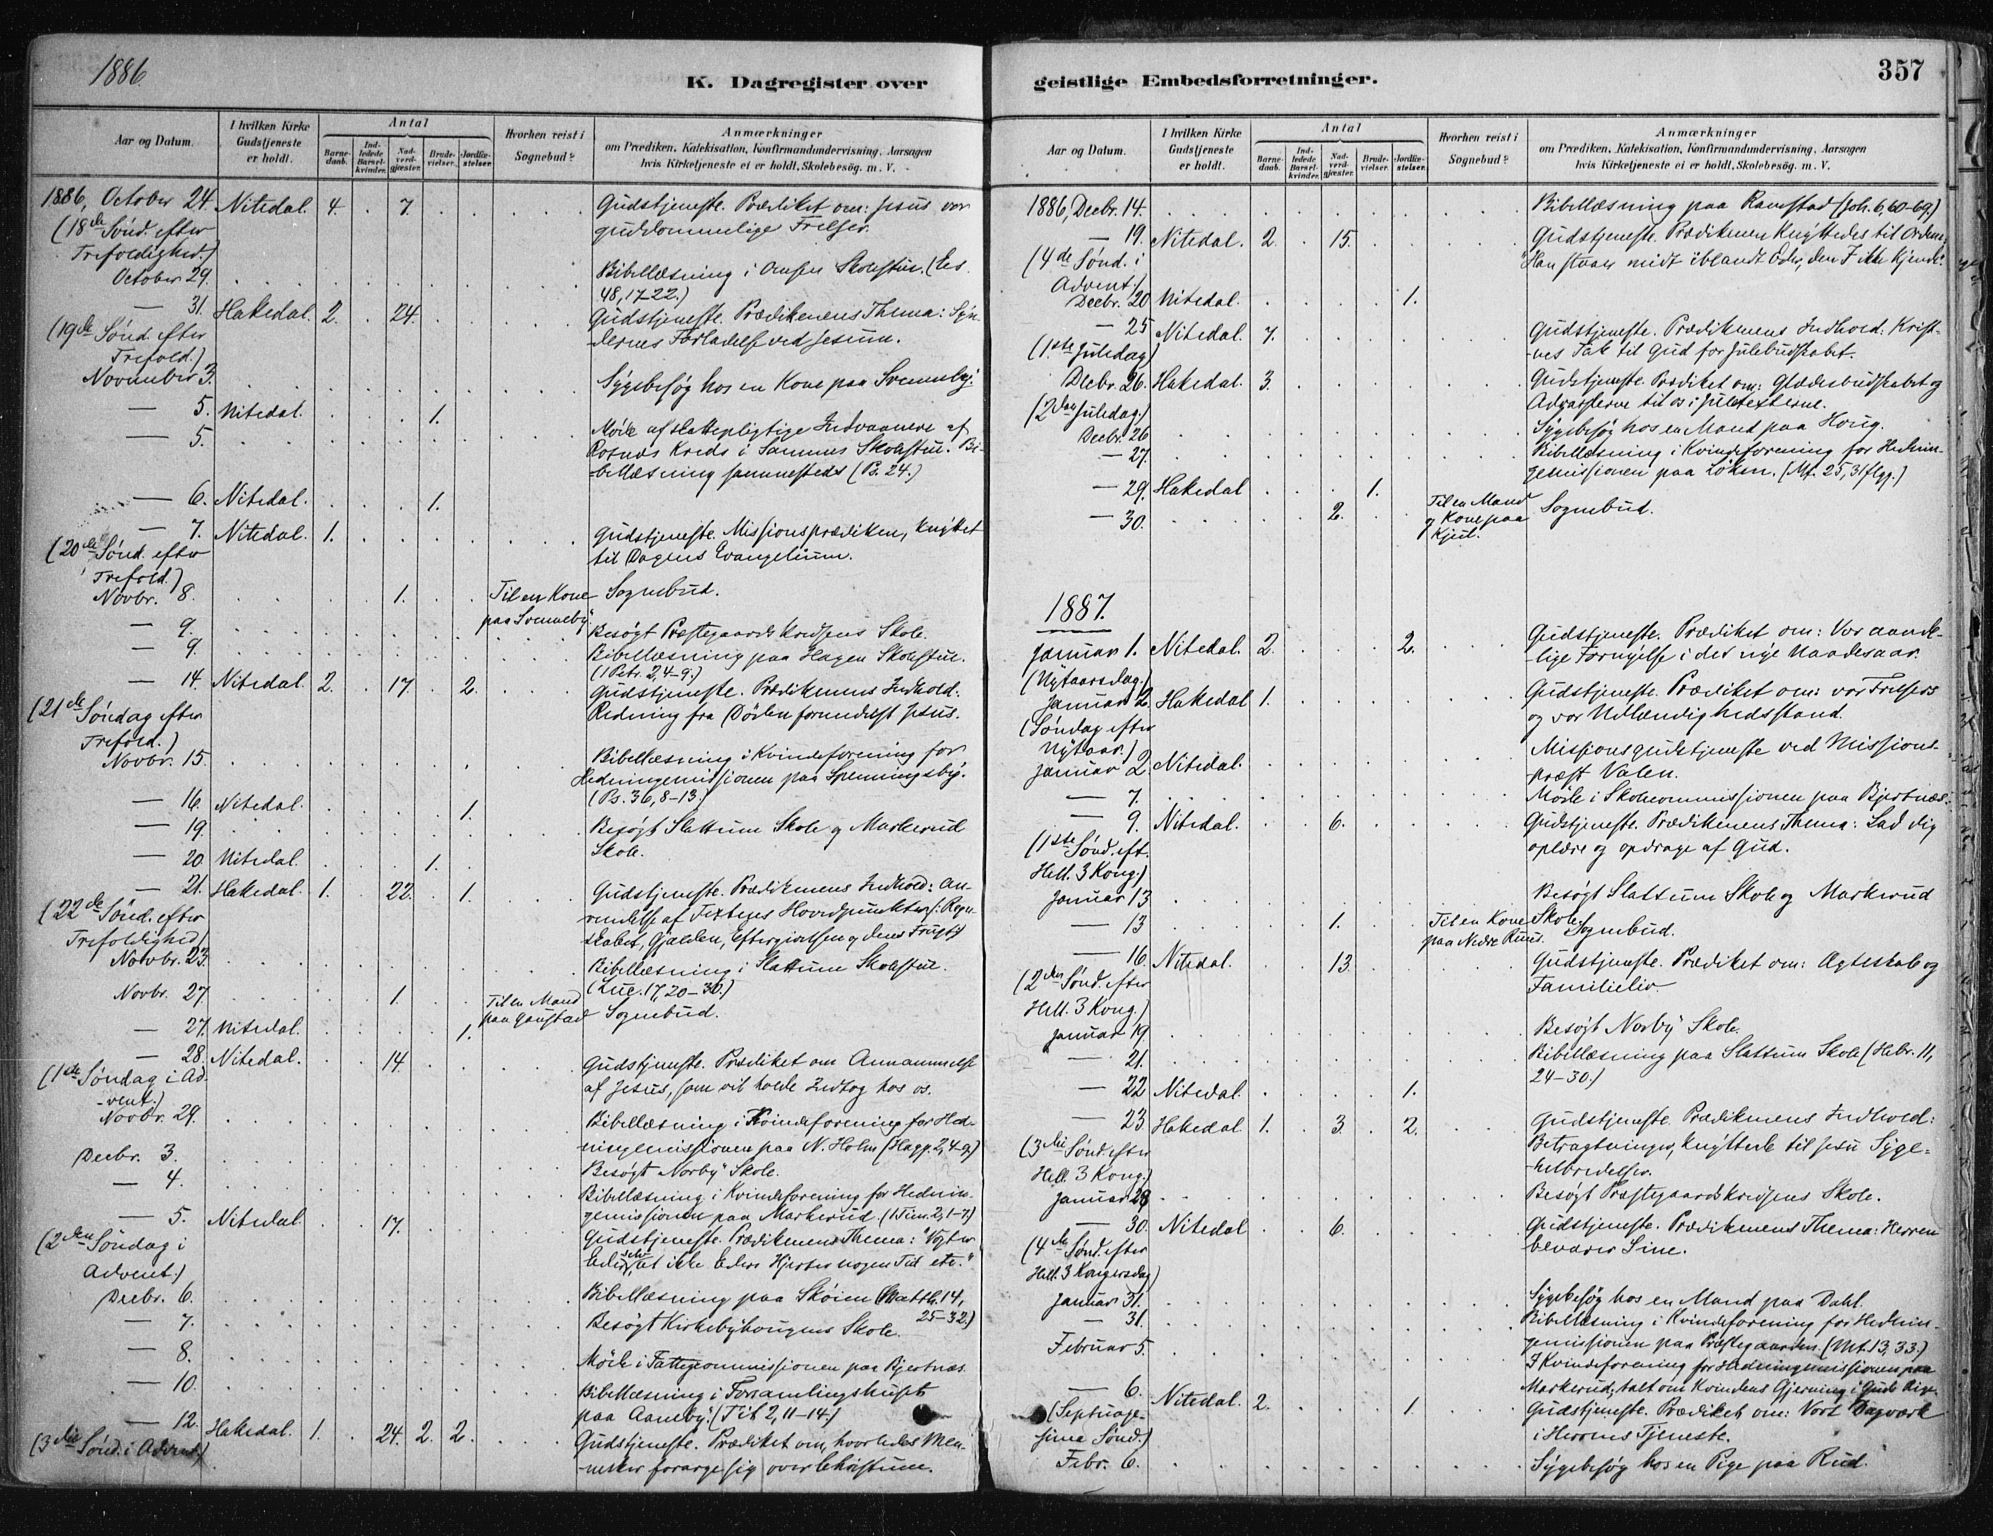 1886.
K. Dagregister over
Aar og Datum.
I hvilken Kirke Gudstjeneste er holdt.
Antal
Barnedaab.
Indledede Barselkvinder.
Nadverdgjæster.
Brudevielser.
Jordfæstelser.
Hvorhen reist i Sognebud?
Anmærkninger
om Prædiken, Katekisation, Konfirmandundervisning, Aarsagen
hvis Kirketjeneste ei er holdt, Skolebesög. m. V.
1886, October 24. Nitedal. 4. . 7. Gudstjeneste. Prædiket om: Jesus vor
(18de Sönd. efter guddommelige Frelser.
Trefoldighed.)
October 29. Bibellæsning i Skolestue. (Es.
48, 17-22.)
— 31. Hakedal. 2. 24. Gudstjeneste. Prædikenens Thema: Syn-
(19de Sönd. efter dernes Forladelse ved Jesum.
Trefold.)
November 3. Sygebesøg hos en Kone paa Svenneby.
— 5. Nitedal. 1.
— 5. Möde af skattepligtige Indvaanere af
Rotnes Kreds i Sammes Skolestue. Bi-
bellæsning sammesteds (Ps. 24.)
— 6. Nitedal. 1.
— 7. Nitedal. 1. Gudstjeneste. Missionsprædiken, knyttet
(20de Sönd. efter til Dagens Evangelium.
Trefold.)
Novbr. 8. 1. Til en Kone paa Svenneby. Sognebud.
— 9. Besögt Præstegaards Kredsens Skole.
— 9. Bibellæsning paa Hagen Skolestue.
(1 Petr. 2, 4-9.)
— 14. Nitedal. 2. 17. 2. Gudstjeneste. Prædikenens Indhold:
(21de Söndag efter Redning fra Döden formedelst Jesus.
Trefold.)
Novbr. 15. Bibellæsning i Kvindeforening for
Hedningemissionen paa Spenningsby.
(Ps. 36, 8-13.)
— 16. Nitedal. 1.
— 19. Besögt Slattum Skole og Markerud
Skole.
— 20. Nitedal. 1.
— 21. Hakedal. 1. 22. 1. Gudstjeneste. Prædikenens Indhold: An-
(22de Sönd. efter vendelse af Textens Hovedpunkter: Regn-
Trefoldighed) skabet, Gjælden, Eftergivelsen og dens Frugt.
Novbr. 23. Bibellæsning i Slattum Skolestue.
(Luc. 17, 20-30.)
Novbr. 27. 1. Til en Mand paa Gaustad Sognebud.
— 27. Nitedal. 1.
— 28. Nitedal. 14. Gudstjeneste. Prædiket om Annammelse
(1ste Söndag i Ad- af Jesus, som vil holde Indtog hos os.
-vent.)
Novbr. 29. Bibellæsning i Kvindeforening for Hed-
ningemissionen paa N. Holm (Hagg. 2, 4-9)
Decbr. 3. Besögt Norby Skole.
— 4. Bibellæsning i Kvindeforening for Hednin-
gemissionen paa Markerud. (1 Tim. 2, 1-7.)
— 5. Nitedal. 17. Gudstjeneste. Prædikenens Thema: "Vogter
(2den Söndag i Eder, at ikke Eders Hjerter nogen Tid etc."
Advent.)
Decbr. 6. Bibellæsning paa Skøien (Matth. 14,
25-32.)
— 7. Besögt Kirkebyhougens Skole.
— 8. Möde i Fattigcommissionen paa Bjertnæs.
— 10. Bibellæsning i Forsamlingshuset
paa Aaneby. (Tit. 2, 11-14.)
— 12. Hakedal. 1. 24. 2. 2. Gudstjeneste. Prædiket om, hvorledes Men-
(3die Sönd. i Advent) nesker forarge sig over Christum.
geistlige Embedsforretninger.
357
Aar og Datum.
I hvilken Kirke Gudstjeneste er holdt.
Antal
Barnedaab.
Indledede Barselkvinder.
Nadverdgjæster.
Brudevielser.
Jordfæstelser.
Hvorhen reist i Sognebud?
Anmærkninger
om Prædiken, Katekisation, Konfirmandundervisning, Aarsagen
hvis Kirketjeneste ei er holdt, Skolebesög. m. V.
1886, Decbr. 14. Bibellæsning paa Ramstad (Joh. 6, 60-69.)
— 19. Nitedal. 2. 15. Gudstjeneste. Prædikenen knyttedes til Ordene:
(4de Sönd. i "Han staar midt iblandt Eder, den I ikke kjende".
Advent.)
Decbr. 20 Nitedal. 1.
— 25 Nitedal. 7. Gudstjeneste. Prædikenens Indhold: Krist-
(1ste Juledag) nes Tak til Gud for Julebudskabet.
Decbr. 26. Hakedal. 3. Gudstjeneste. Prædiket om: Glædesbudskabet og
(2den Juledag.) Advarslerne til os i Juletexterne.
Decbr. 26 Sygebesøg hos en Mand paa Houg.
— 27. Bibellæsning i Kvindeforening for Hednin-
gemissionen paa Löken. (Mt. 25, 31 flgg.)
— 29. Hakedal 1.
— 30. 2. Til en Mand og Kone paa Kjul. Sognebud.
1887.
Januar 1. Nitedal. 2. 2. Gudstjeneste. Prædiket om: Vor aande-
(Nytaarsdag.) lige Fornyelse i det nye Naadesaar.
Januar 2. Hakedal 1. Gudstjeneste. Prædiket om: vor Frelsers
(Söndag efter og vor Udlændighedsstand.
Nytaar.)
Januar 2. Nitedal. Missionsgudstjeneste ved Missions-
præst Valen.
— 7. Möde i Skolecommissionen paa Bjertnæs.
— 9. Nitedal. 6. Gudstjeneste. Prædikenens Thema: Lad dig
(1ste Sönd. eft. oplære og opdrage af Gud.
Hell. 3 Kong.)
Januar 13 Besögt Slattum Skole og Markerud
Skole.
— 13 1. Til en Kone paa Nedre Ruud. Sognebud.
— 16. Nitedal. 13. Gudstjeneste. Prædiket om: Ægteskab og
(2den Sönd. efter Familieliv.
Hell. 3 Kong.)
Januar 19. Besögt Norby Skole.
— 21. Bibellæsning paa Slattum Skole (Hebr. 11,
24-30.)
— 22 Nitedal. 1.
— 23. Hakedal 1. 3. 2. Gudstjeneste. Prædikenens Indhold:
(3die Sönd. efter Betragtninger, knyttede til Jesu Syge-
Hell. 3 Kong.) helbredelser.
Januar 28 Besögt Præstegaardskredsens Skole.
— 30. Nitedal 6. Gudstjeneste. Prædikenens Thema: Herren
(4de Sönd. efter bevarer Sine.
Hell. 3 Kongersdag)
Januar 31. Sygebesøg hos en Mand paa Dahl.
— 31. Bibellæsning i Kvindeforening for Hednin-
gemissionen paa Præstegaarden. (Mt. 13, 33.)
Februar 5. I Kvindeforening for Hedningemissionen paa
Markerud; talt om Kvindens Gjerning i Guds Rige.
— 6. Nitedal. 2. 1. Gudstjeneste. Prædiket om: Vort Dagværk
(Septuage- i Herrens Tjeneste.
sima Sönd.)
Febr. 6. Sygebesøg hos en Pige paa Rud.